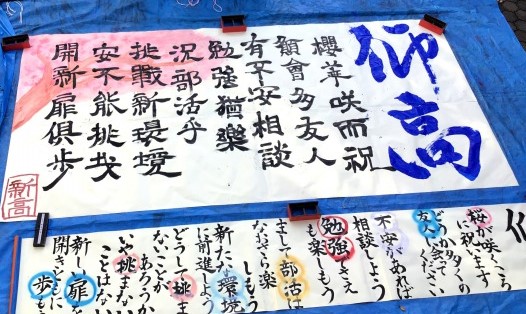 仰高
櫻華咲而祝
願會多友人
有不安相談
勉強猶樂
況部活乎
挑戰新環境
安不能挑
開新扉俱步
新高
桜が咲くこち
に祝います
どうか多くの
友人に会
ください
不安があれば
相談しよう
勉強でさえ
も楽しもう
まして部活は
なおさら楽
しもう
新たな環境
に前進しよう
どうして挑ま
ないことが
あろうか
いや挑まない
ことはない
新しい扉を
開きともに
歩も